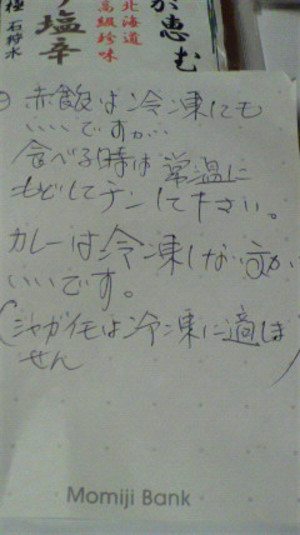 が恵む
北海道
高級珍味
塩辛
極 石狩水
赤飯は冷凍にも
いいですが…
食べる時は常温に
もどしてチンして下さい。
カレーは冷凍しない方が
いいです。
(ジャガイモは冷凍に適しま
せん
Momiji Bank